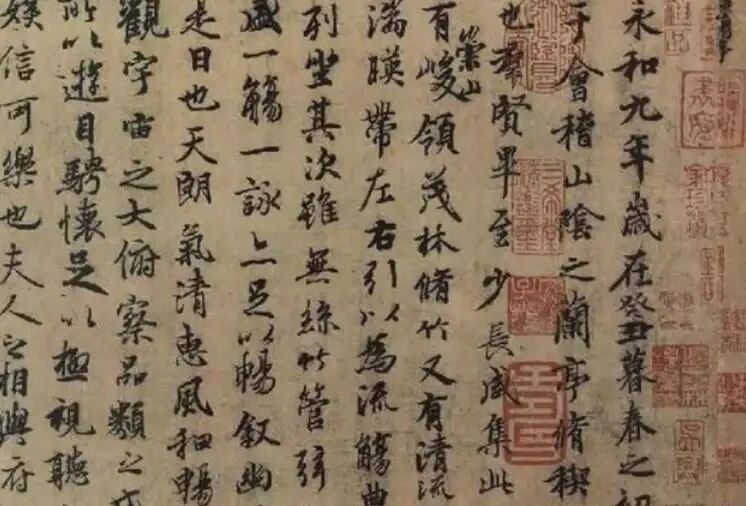 永和九年歲在癸丑暮春之初
于會稽山陰之蘭亭脩稧
也羣賢畢至少長咸集此
有崇山峻領茂林脩竹又有清流
湍暎帶左右引以為流觴曲
列坐其次雖無絲竹管弦
盛一觴一詠亦足以暢敘幽
是日也天朗氣清惠風和暢
觀宇宙之大俯察品類之盛
所以遊目騁懷足以極視聽
娛信可樂也夫人之相與俯